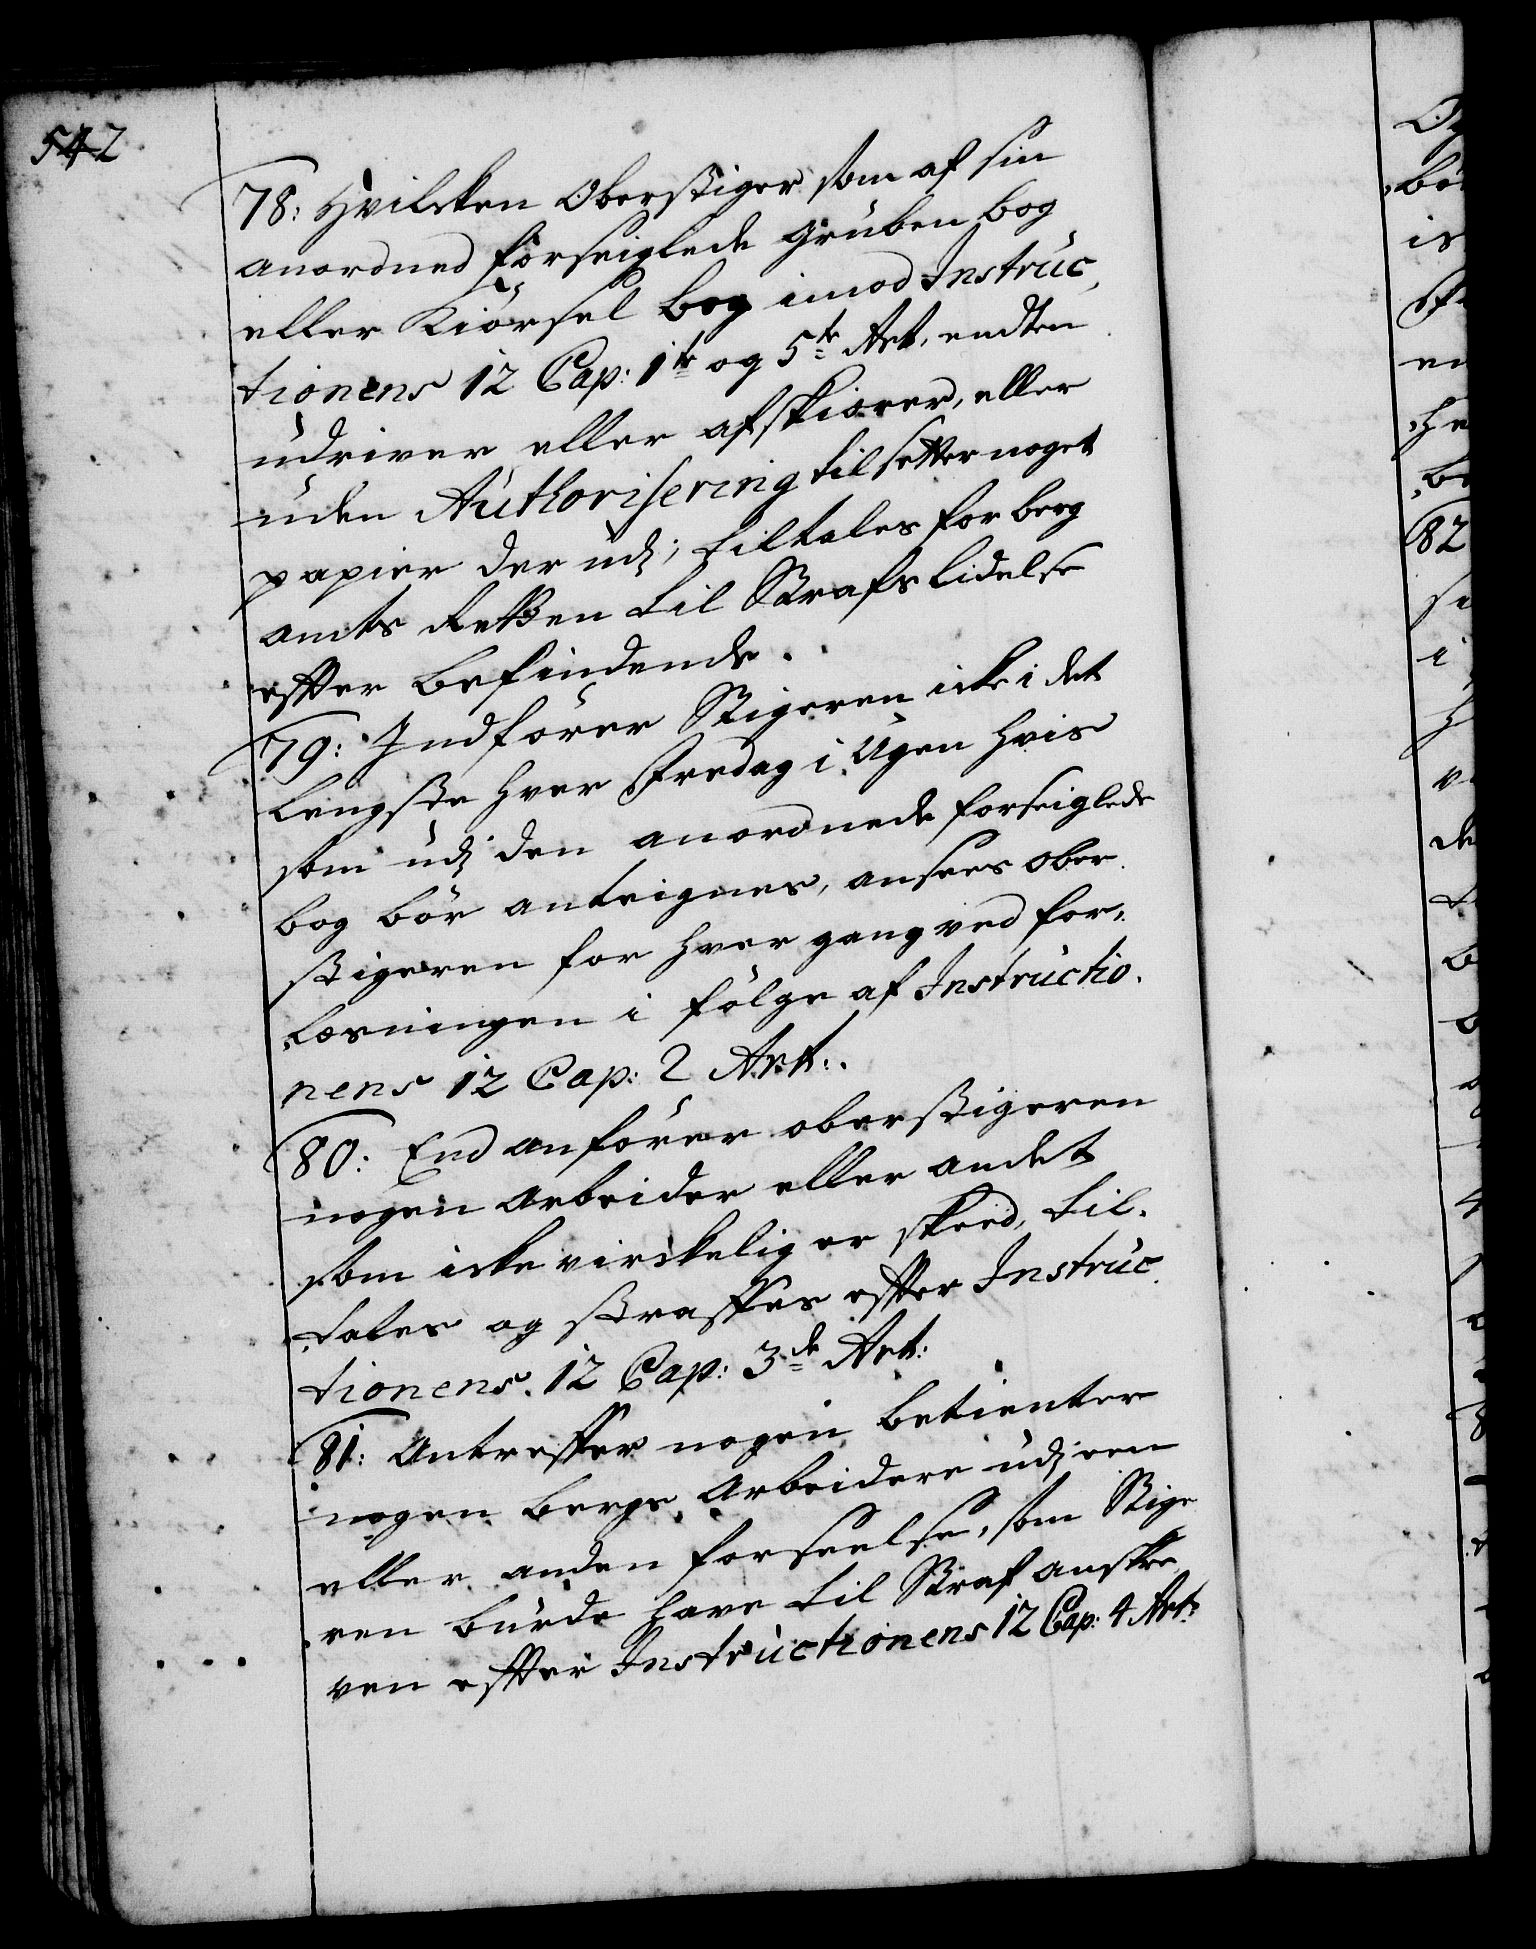 542
78: Hvilcken Oberstiger som af sin
anordned forseiglede Gruben bog
eller Kiörsel bog imod Instruc,
tionens 12 Cap: 1te og 5te Art. endten
udriver eller afskiærer, eller
uden Authorisering tilsetter noget
papier der udj; tiltales for berg
amts Retten til Strafs lidelse
effter befindende.
79: Indförer Stigeren icke i det
lengste hver Fredag i Ugen hvis
som udj den anordnede forseiglede
bog bör anteignes, ansees ober
stigeren for hver gang ved for,
læsningen i fölge af Instructio.
nens 12 Cap: 2 Art:.
80: End anförer oberstigeren
nogen Arbeider eller andet
som icke virckelig er skeed, til.
tales og straffes effter Instruc
tionens. 12 Cap: 3de Art:
81: Antreffer nogen betienter
nogen bergs Arbeidere udj een
eller anden forseelse, som Stige
ren burde have til Straf anskre
ven effter Instructionens 12 Cap: 4 Art:
82